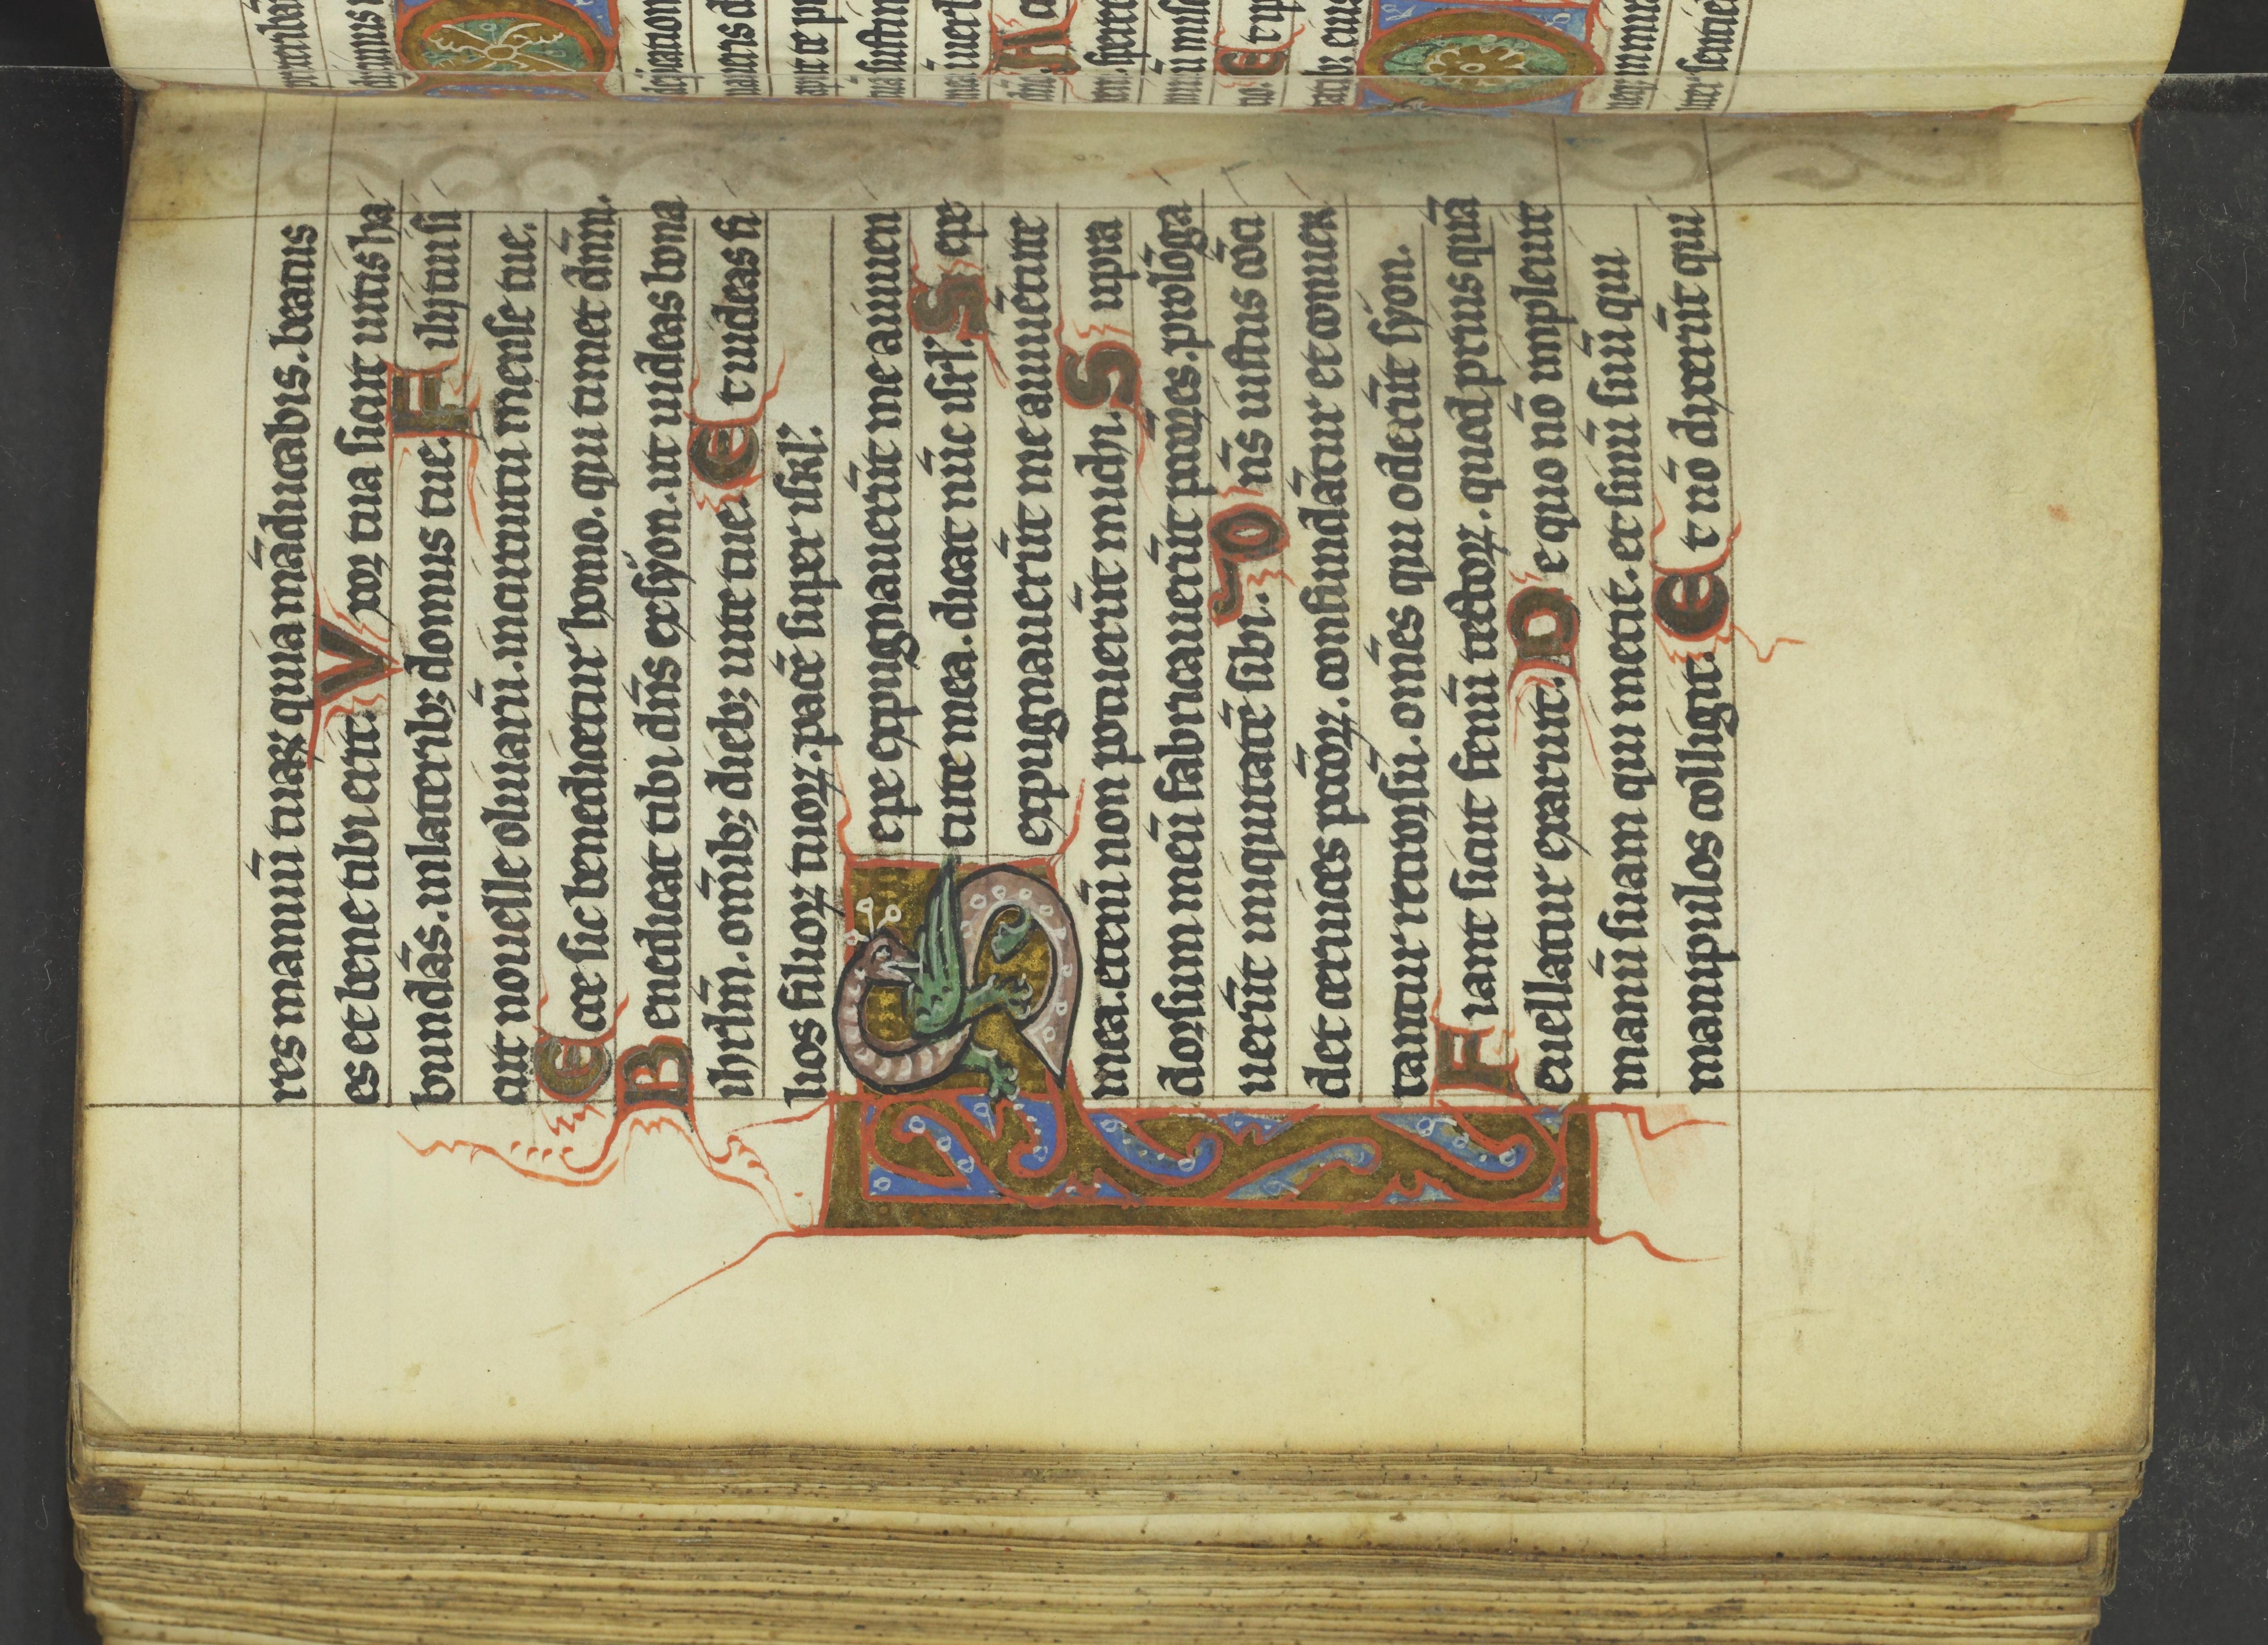 res manuū tuaꝝ quia māducabis. beatus
es et bene tibi erit. Vxoꝝ tua sicut uitis ha
bundās. in lateribꝫ domus tue. Filij tui si
cut nouelle oliuarū. in circuitu mense tue.
Ecce sic benedicetur homo. qui timet dn̄m.
Benedicat tibi dn̄s ex syon. ut uideas bona
ihrl̄m. omībꝫ diebꝫ uite tue. Et uideas fi
lios filioꝝ tuoꝝ. pacē super isrl'.
Sepe expugnauerūt me a iuuen
tute mea. dicat nūc isrl'. Sepe
expugnauerūt me a iuuentute
mea. etenī non potuerūt michi. Supra
dorsum meū fabricauerūt p̄cc̄ores. prolōga
uerūt iniquitatē sibi. Dn̄s iustus cōci
det ceruices pcc̄oꝝ. confundātur et conuer
tantur retrorsū. omēs qui oderūt syon.
Fiant sicut fenū tectoꝝ. quod prius quā
euellatur exaruit. De quo nō impleuit
manū suam qui metit. et sinū suū qui
manipulos colligit. Et nō dixerūt qui